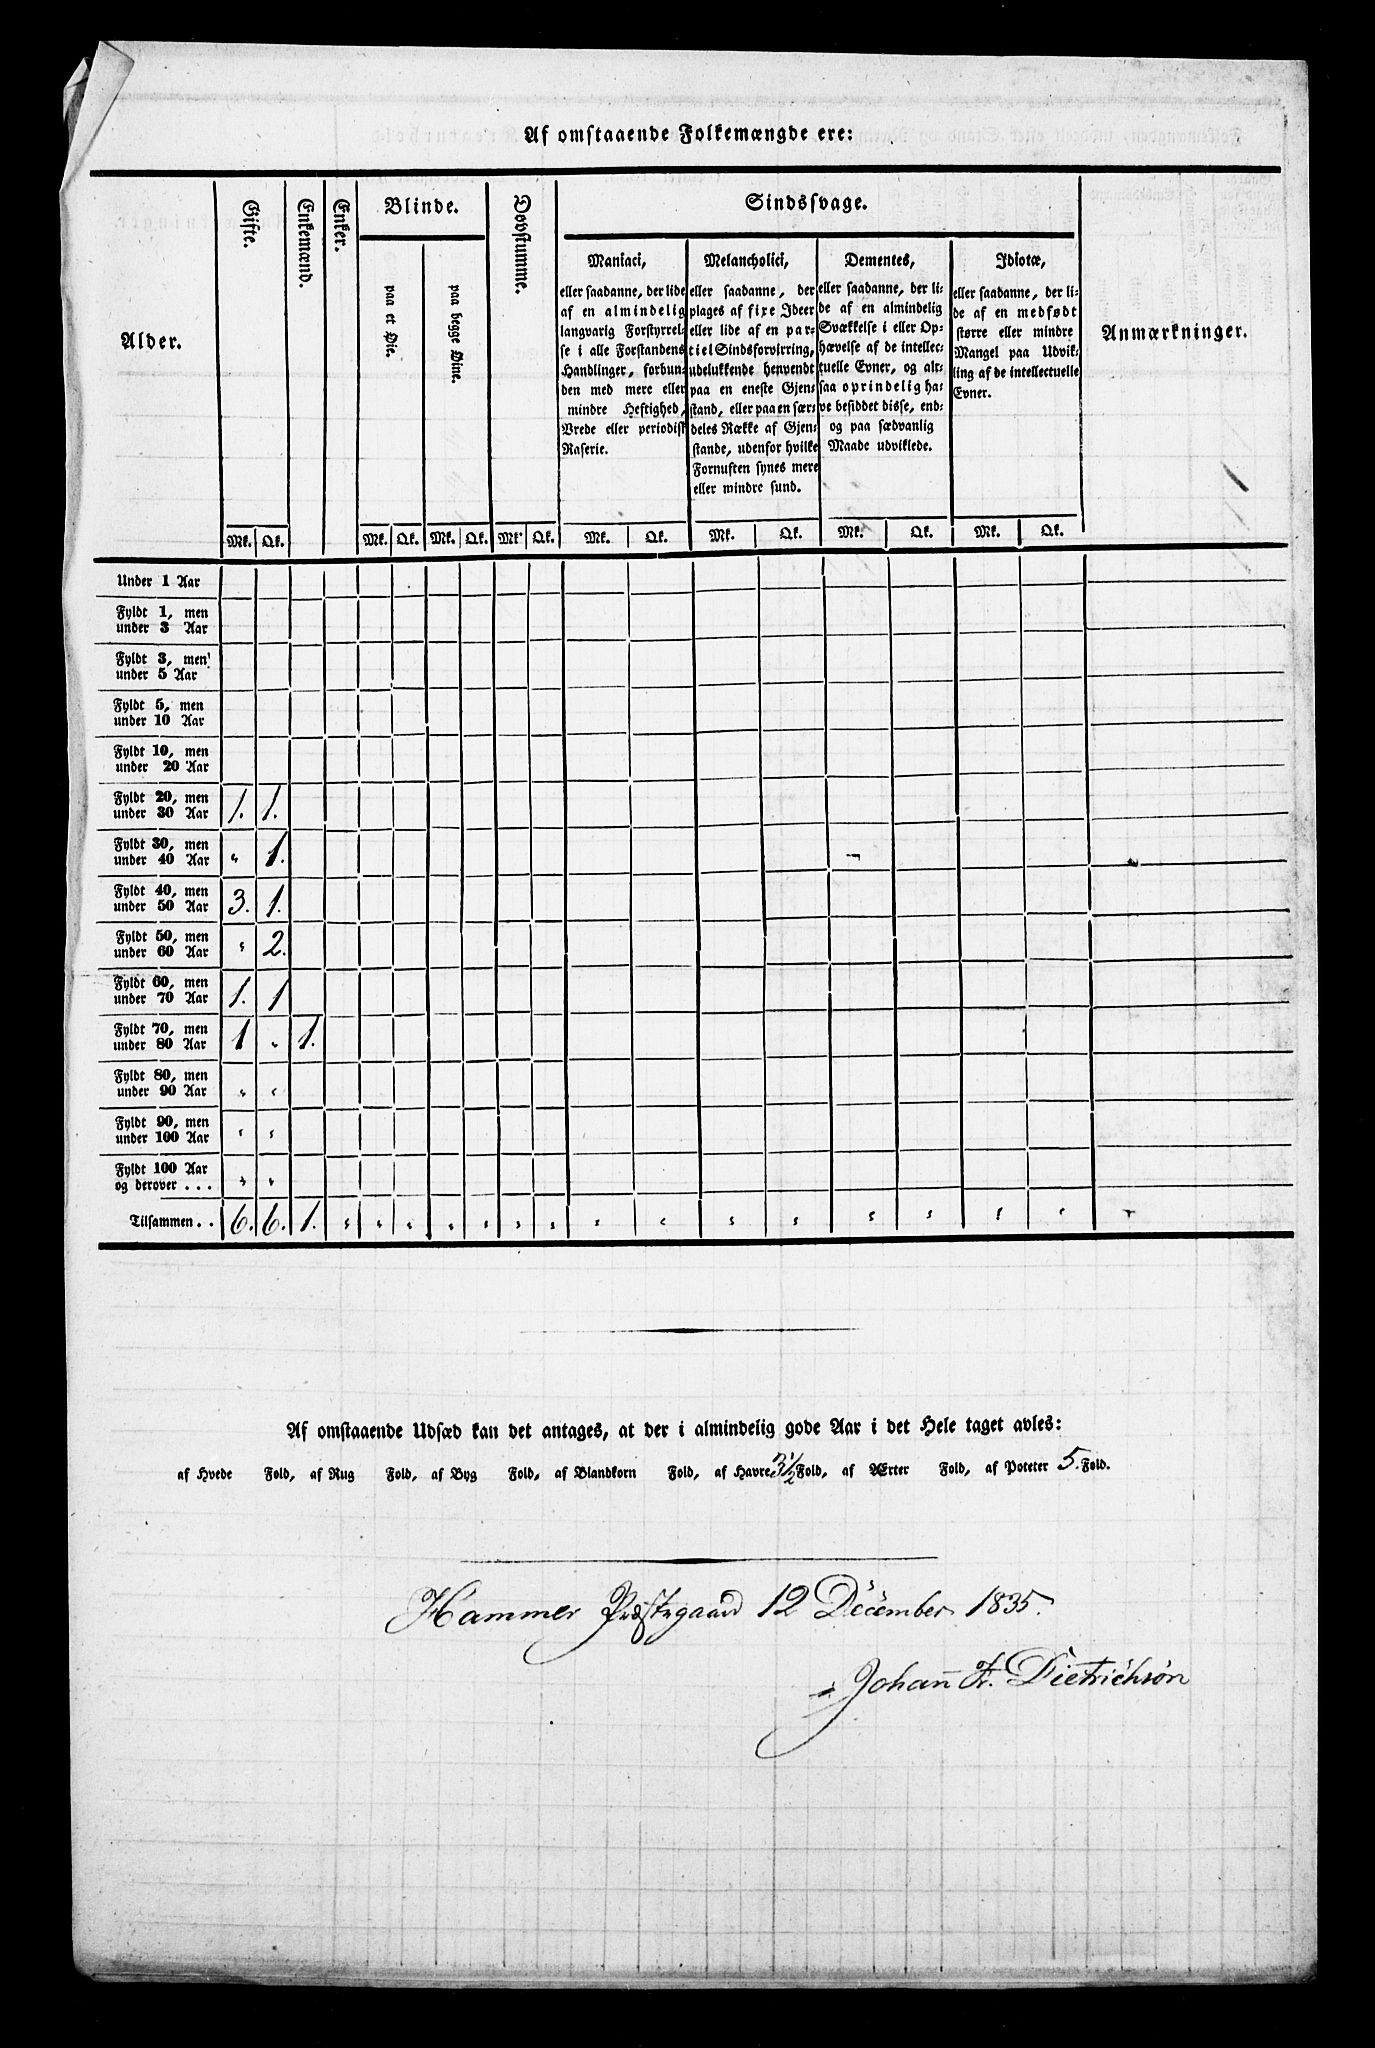 Af omstaaende Folkemængde ere:
Alder.
Gifte.
Enkemænd.
Enker.
Blinde.
paa et Øie.
paa begge Øine.
Døvstumme.
Sindssvage.
Maniaci,
eller saadanne, der lide
af en almindelig
langvarig Forstyrrel-
se i alle Forstandens
Handlinger, forbun-
den med mere eller
mindre Heftighed,
Vrede eller periodisk
Raserie.
Melancholici,
eller saadanne, der
plages af fixe Ideer
eller lide af en par-
tiel Sindsforvirring,
udelukkende henvendt
paa en eneste Gjen-
stand, eller paa en sær-
deles Række af Gjen-
stande, udenfor hvilke
Fornuften synes mere
eller mindre sund.
Dementes,
eller saadanne, der li-
de af en almindelig
Svækkelse i eller Op-
hævelse af de intellec-
tuelle Evner, og alt-
saa oprindelig ha-
ve besiddet disse, end-
og paa sædvanlig
Maade udviklede.
Idiotæ,
eller saadanne, der li-
de af en medfødt
større eller mindre
Mangel paa Udvik-
ling af de intellectuelle
Evner.
Anmærkninger.
Mk. Qk. Mk. Qk. Mk. Qk. Mk. Qk. Mk. Qk. Mk. Qk. Mk. Qk. Mk. Qk.
Under 1 Aar
Fyldt 1, men
under 3 Aar
Fyldt 3, men
under 5 Aar
Fyldt 5, men
under 10 Aar
Fyldt 10, men
under 20 Aar
Fyldt 20, men
under 30 Aar 1. 1.
Fyldt 30, men
under 40 Aar " 1.
Fyldt 40, men
under 50 Aar 3. 1.
Fyldt 50, men
under 60 Aar " 2.
Fyldt 60, men
under 70 Aar 1. 1
Fyldt 70, men
under 80 Aar 1 " 1.
Fyldt 80, men
under 90 Aar " "
Fyldt 90, men
under 100 Aar " "
Fyldt 100 Aar
og derover . . . " "
Tilsammen . . 6. 6. 1. " " " " " " " " " " " " " " " "
Af omstaaende Udsæd kan det antages, at der i almindelig gode Aar i det Hele taget avles:
af Hvede Fold, af Rug Fold, af Byg Fold, af Blandkorn Fold, af Havre 3 1/2 Fold, af Ærter Fold, af Poteter 5. Fold.
Hammer Præstegaard 12 December 1835.
Johan Fr. Dietrichson